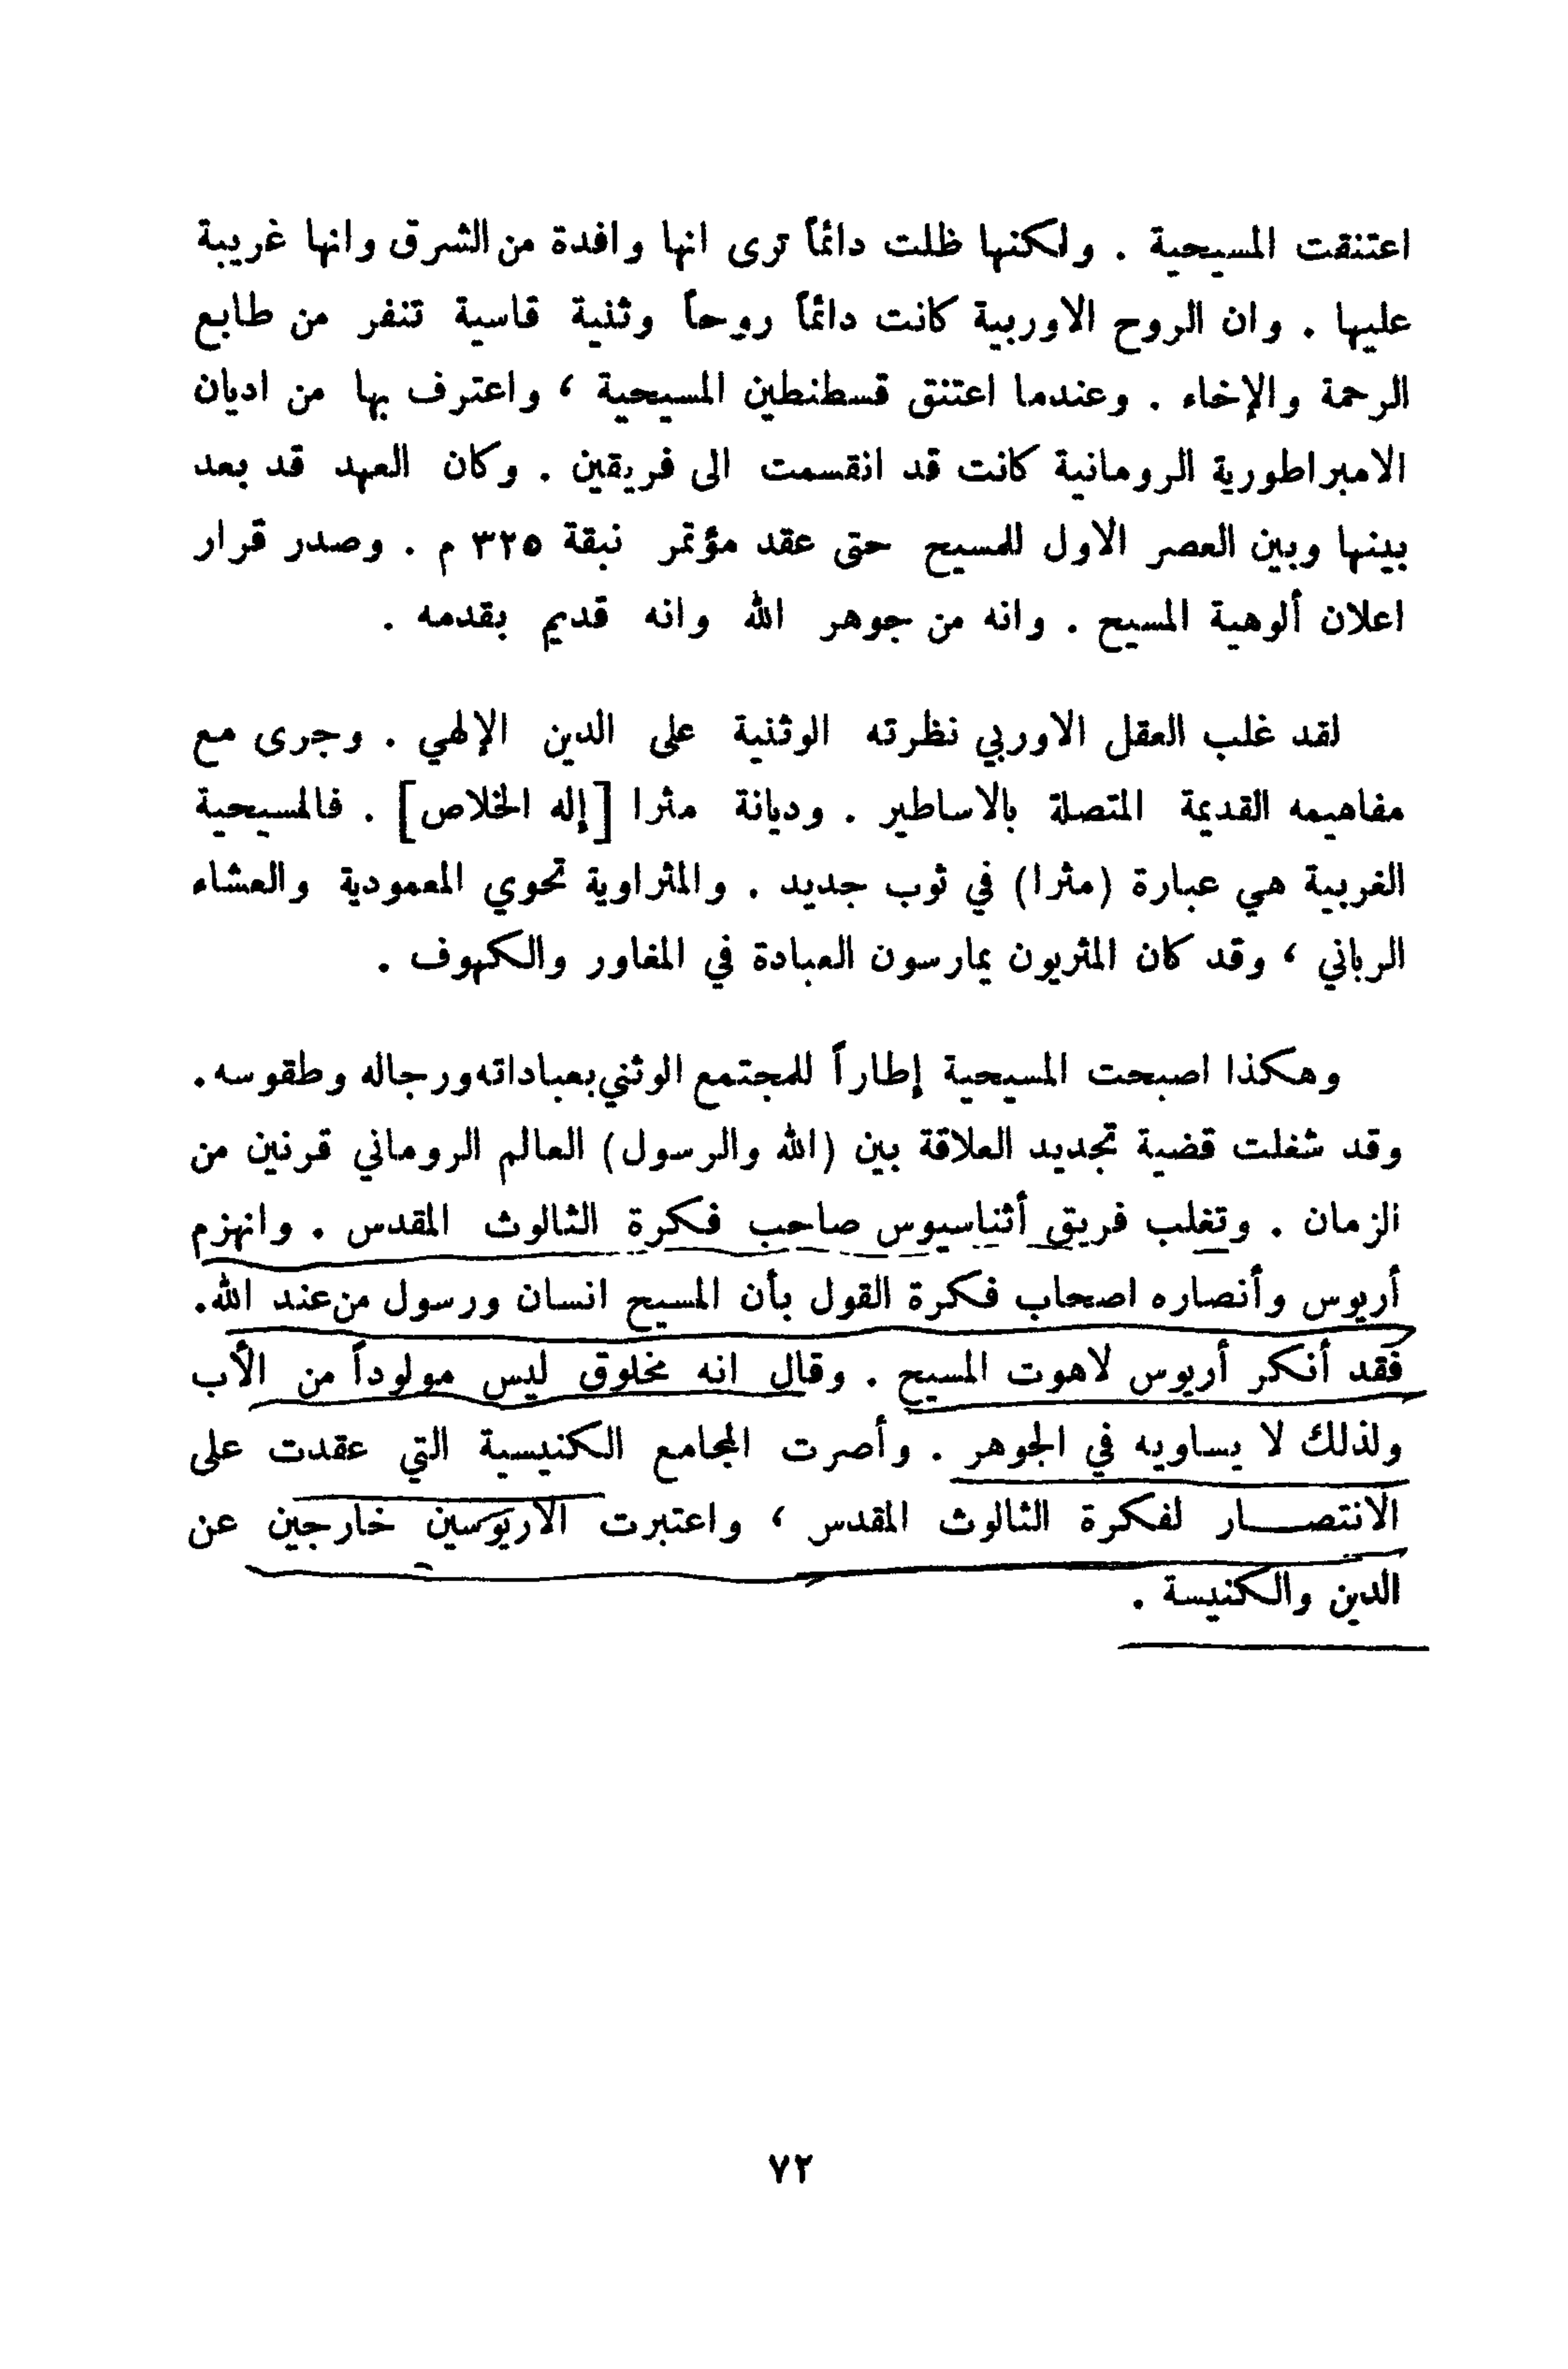 اعتنقت المسيحية . ولكنها ظلت دائماً ترى انها وافدة من الشرق وانها غريبة
عليها . وان الروح الاوربية كانت دائماً روحاً وثنية قاسية تنفر من طابع
الرحمة والإخاء . وعندما اعتنق قسطنطين المسيحية ، واعترف بها من اديان
الامبراطورية الرومانية كانت قد انقسمت الى فريقين . وكان العهد قد بعد
بينها وبين العصر الاول للمسيح حتى عقد مؤتمر نبقة ٣٢٥ م . وصدر قرار
اعلان ألوهية المسيح . وانه من جوهر الله وانه قديم بقدمه .
لقد غلب العقل الاوربي نظرته الوثنية على الدين الإلهي . وجرى مع
مفاهيمه القديمة المتصلة بالاساطير . وديانة مثرا [إله الخلاص] . فالمسيحية
الغربية هي عبارة (مثرا) في ثوب جديد . والمثراوية تحوي المعمودية والعشاء
الرباني ، وقد كان المثريون يمارسون العبادة في المغاور والكهوف .
وهكذا اصبحت المسيحية إطاراً للمجتمع الوثني بعباداته ورجاله وطقوسه .
وقد شغلت قضية تجديد العلاقة بين (الله والرسول) العالم الروماني قرنين من
الزمان . وتغلب فريق أثناسيوس صاحب فكرة الثالوث المقدس . وانهزم
أريوس وأنصاره اصحاب فكرة القول بأن المسيح انسان ورسول من عند الله .
فقد أنكر أريوس لاهوت المسيح . وقال انه مخلوق ليس مولوداً من الأب
ولذلك لا يساويه في الجوهر . وأصرت المجامع الكنيسية التي عقدت على
الانتصـــار لفكرة الثالوث المقدس ، واعتبرت الاريوسين خارجين عن
الدين والكنيسة .
٧٢